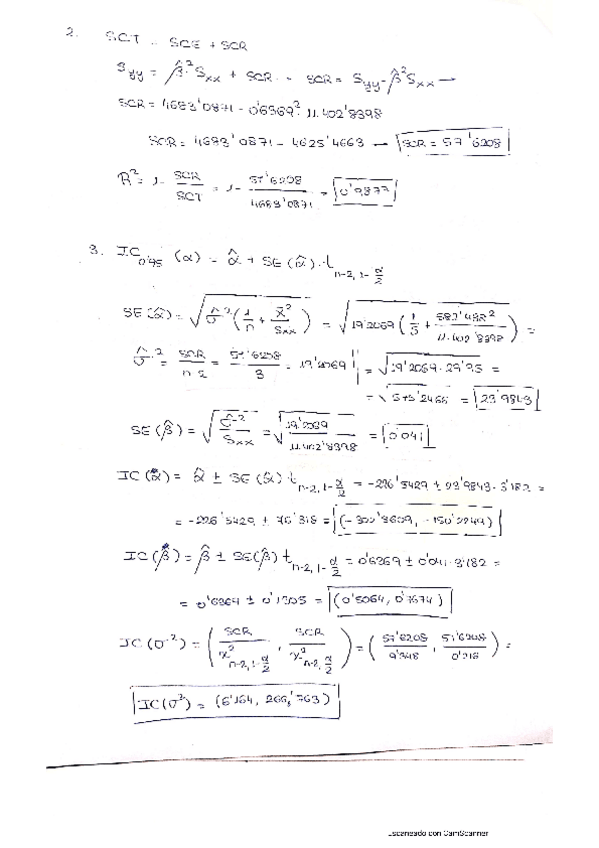 2. SCT = SCE + SCR
Syy = β̂² Sxx + SCR → SCR = Syy - β̂² Sxx →
SCR = 4683'0871 - 0'6369² · 11.402'8398
SCR = 4683'0871 - 4625'4663 → SCR = 57'6208
R² = 1 - SCR/SCT = 1 - 57'6208/4683'0871 = 0'9877
3. IC0'95 (α) = α̂ ± SE(α̂) · t n-2, 1-α/2
SE(α̂) = √(σ̂²(1/n + x̄²/Sxx)) = √(19'2069(1/5 + 582'488²/11.402'8398)) =
σ̂² = SCR/n-2 = 57'6208/3 = 19'2069 | = √(19'2069 · 29'95) =
= √575'2466 = 23'9843
SE(β̂) = √(σ̂²/Sxx) = √(19'2069/11.402'8398) = 0'041
IC(α) = α̂ ± SE(α̂) · t n-2, 1-α/2 = -226'5429 ± 23'9843 · 3'182 =
= -226'5429 ± 76'318 = (-302'8609, -150'2249)
IC(β) = β̂ ± SE(β̂) t n-2, 1-α/2 = 0'6369 ± 0'041 · 3'182 =
= 0'6369 ± 0'1305 = (0'5064, 0'7674)
IC(σ²) = (SCR/χ² n-2, 1-α/2 , SCR/χ² n-2, α/2) = (57'6208/9'348 , 57'6208/0'216) =
IC(σ²) = (6'164, 266'763)
Escaneado con CamScanner